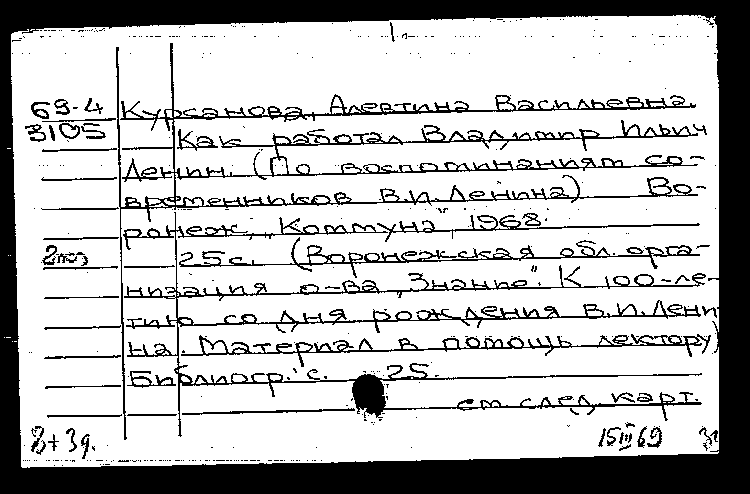 69-4 Курсанова, Алевтина Васильевна.
3105 Как работал Владимир Ильич
Ленин. (По воспоминаниям со-
временников В.И. Ленина) Во-
ронеж, „Коммуна", 1968.
25 с. (Воронежская обл. орга-
низация о-ва „Знание". К 100-ле-
тию со дня рождения В.И. Лени
на. Материал в помощь лектору)
Библиогр.: с. 25.
см след. карт.
2+3д. 15 III 69